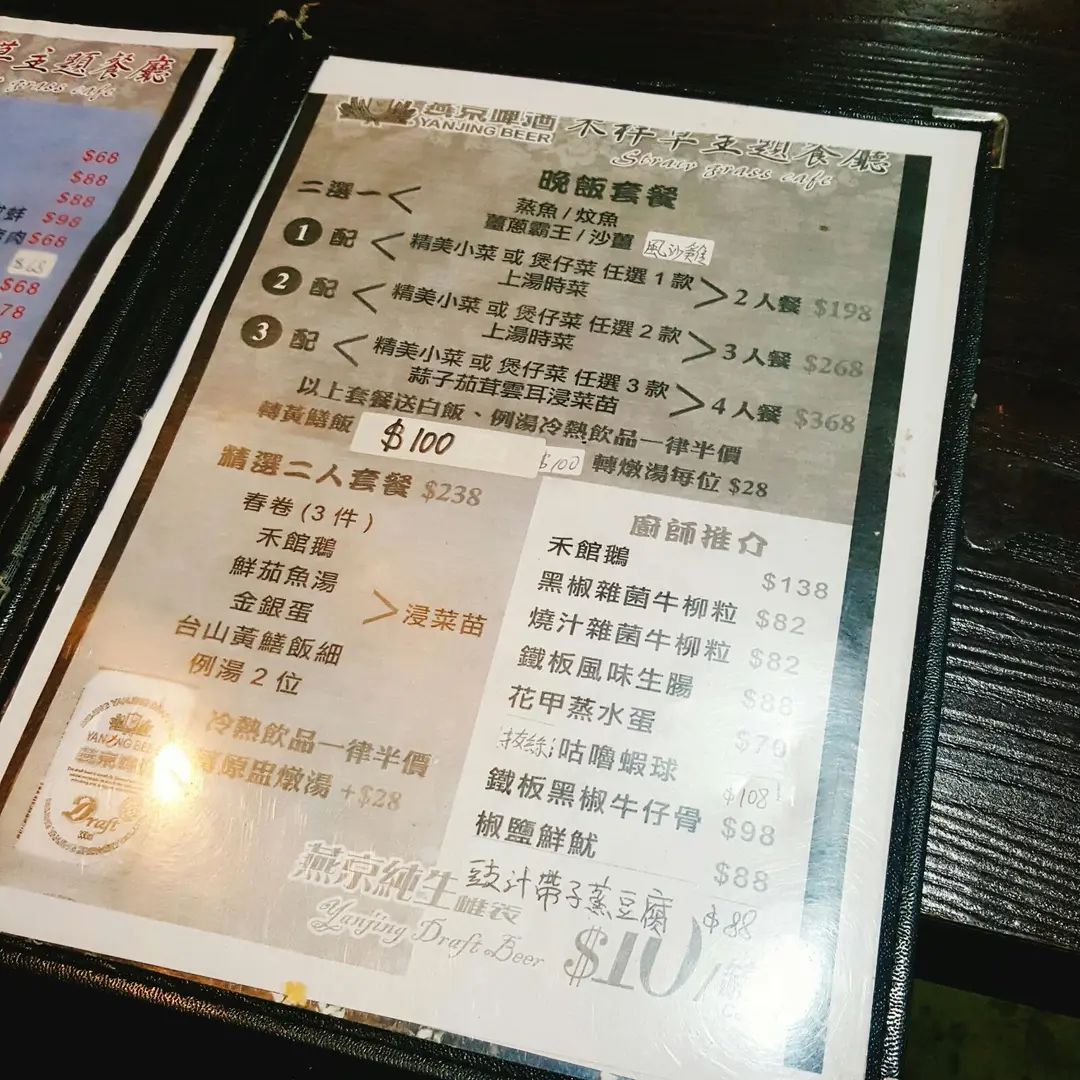 主題餐廳
grass cafe
$68
$88
$88
蚌 $98
肉 $68
$68
$68
燕京啤酒
YANJING BEER
禾稈草主題餐廳
Straw grass cafe
晚飯套餐
二選一 < 蒸魚 / 炆魚
薑蔥霸王 / 沙薑 風沙雞
1 配 < 精美小菜 或 煲仔菜 任選 1 款
上湯時菜 > 2 人餐 $198
2 配 < 精美小菜 或 煲仔菜 任選 2 款
上湯時菜 > 3 人餐 $268
3 配 < 精美小菜 或 煲仔菜 任選 3 款
蒜子茄茸雲耳浸菜苗 > 4 人餐 $368
以上套餐送白飯、例湯冷熱飲品一律半價
轉黃鱔飯 $100 $100 轉燉湯每位 $28
精選二人套餐 $238
春卷 (3 件)
禾館鵝
鮮茄魚湯
金銀蛋 > 浸菜苗
台山黃鱔飯細
例湯 2 位
冷熱飲品一律半價
原盅燉湯 +$28
YANJING BEER
Draft
廚師推介
禾館鵝 $138
黑椒雜菌牛柳粒 $82
燒汁雜菌牛柳粒 $82
鐵板風味生腸 $88
花甲蒸水蛋 $70
拔絲咕嚕蝦球 $108
鐵板黑椒牛仔骨 $98
椒鹽鮮魷 $88
豉汁帶子蒸豆腐 $88
燕京純生
Yanjing Draft Beer
$10/